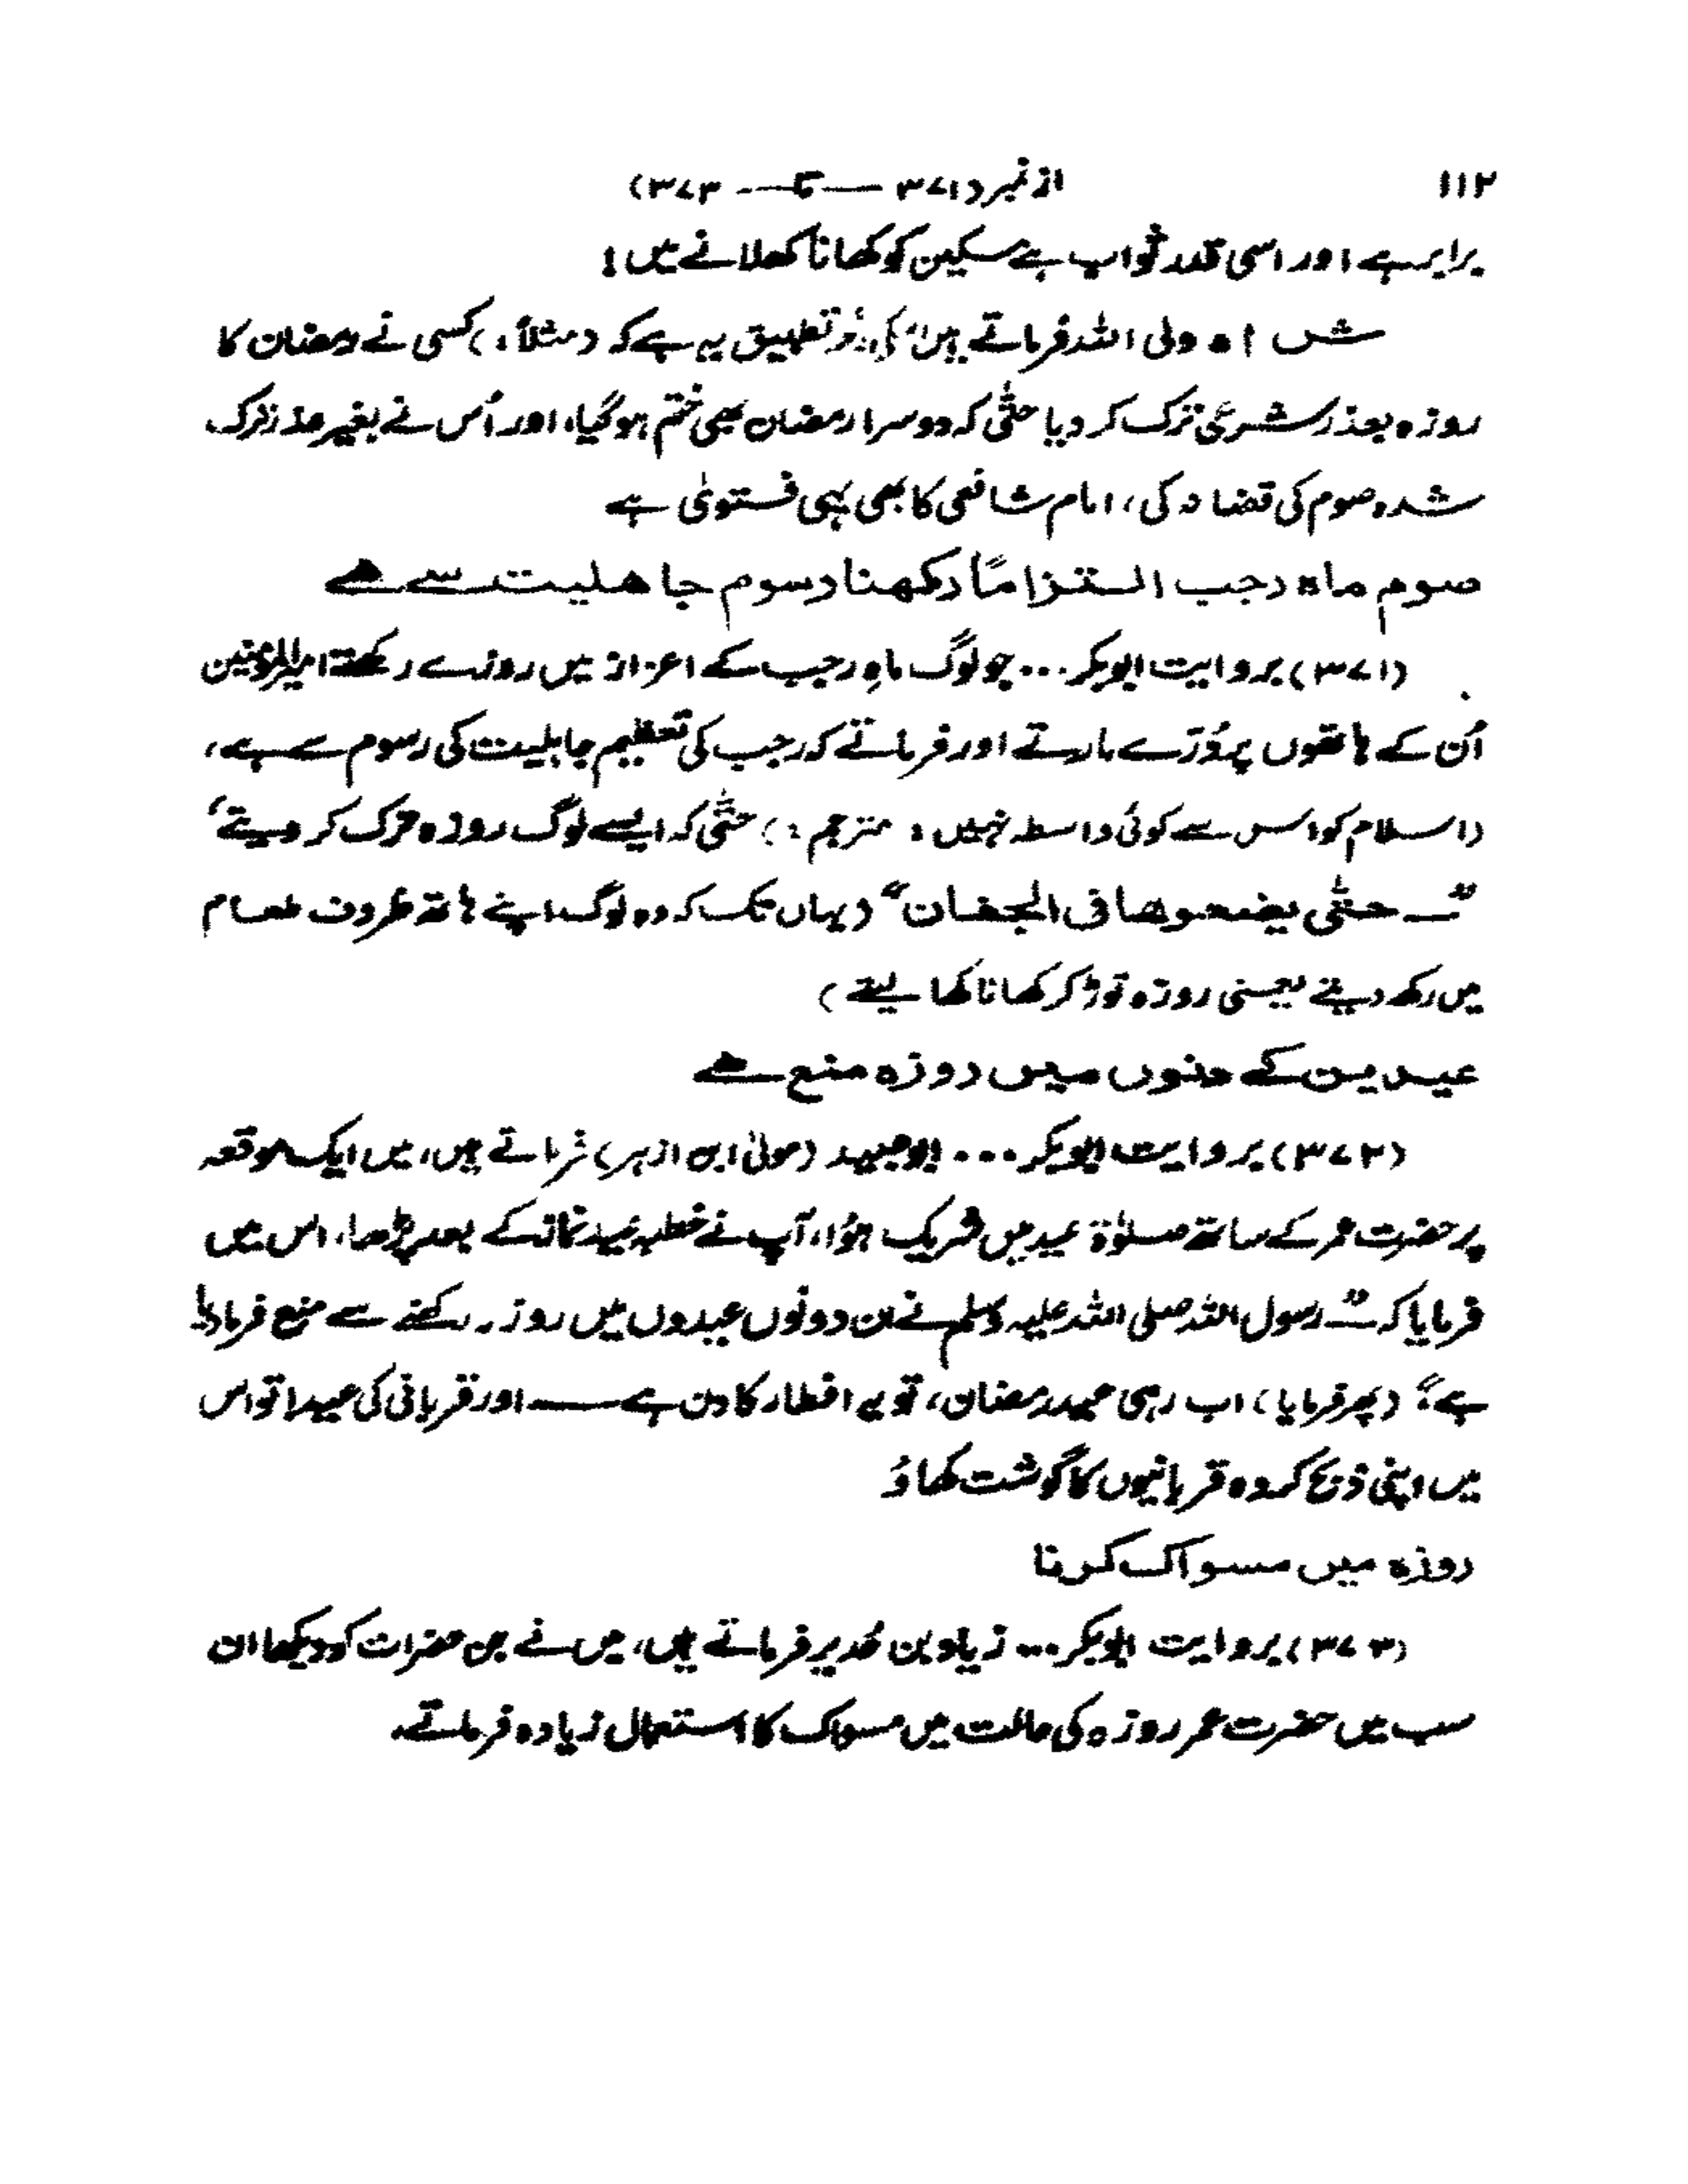 ۱۱۲ از نمبر (۳۷۱ — تا — ۳۷۳)
برابر ہے اور اسی قدر ثواب ہے مسکین کو کھانا کھلانے میں!
شاہ ولی اللہ فرماتے ہیں تطبیق یہ ہے کہ (مثلاً:) کسی نے رمضان کا
روزہ بعذر شرعی ترک کر دیا حتّٰی کہ دوسرا رمضان بھی ختم ہو گیا، اور اُس نے بغیر عذر ترک
شدہ صوم کی قضا نہ کی، امام شافعی کا بھی یہی فتویٰ ہے
صوم ماہ رجب التزامًا رکھنا رسوم جاھلیت سے ھے
(۳۷۱) بروایت ابوبکر... جو لوگ ماہِ رجب کے اعزاز میں روزے رکھتے امیرالمؤمنین
اُن کے ہاتھوں پر دُرّے مارتے اور فرماتے کہ رجب کی تعظیم جاہلیت کی رسوم سے ہے،
(اسلام کو اس سے کوئی واسطہ نہیں: مترجم:) حتّٰی کہ ایسے لوگ روزہ ترک کر دیتے،
"— حتّٰی یضعوھا فی الجفان" (یہاں تک کہ وہ لوگ اپنے ہاتھ ظروف طعام
میں رکھ دیتے یعنی روزہ توڑ کر کھانا کھا لیتے)
عیدین کے دنوں میں روزہ منع ھے
(۳۷۲) بروایت ابوبکر... ابوعبید (مولیٰ ابن ازہر) فرماتے ہیں، میں ایک موقعہ
پر حضرت عمر کے ساتھ صلوٰۃ عید میں شریک ہوُا، آپ نے خطبہ عید نماز کے بعد پڑھا، اس میں
فرمایا کہ "— رسول اللہ صلی اللہ علیہ وسلم نے ان دونوں عیدوں میں روزہ رکھنے سے منع فرمادیا
ہے" (پھر فرمایا) اب رہی عید رمضان، تو یہ افطار کا دن ہے — اور قربانی کی عید! تو اس
میں اپنی ذبح کردہ قربانیوں کا گوشت کھاؤ
روزہ میں مسواک کرنا
(۳۷۳) بروایت ابوبکر... زیاد بن حُدیر فرماتے ہیں، میں نے جن حضرات کو دیکھا ان
سب میں حضرت عمر روزہ کی حالت میں مسواک کا استعمال زیادہ فرماتے۔